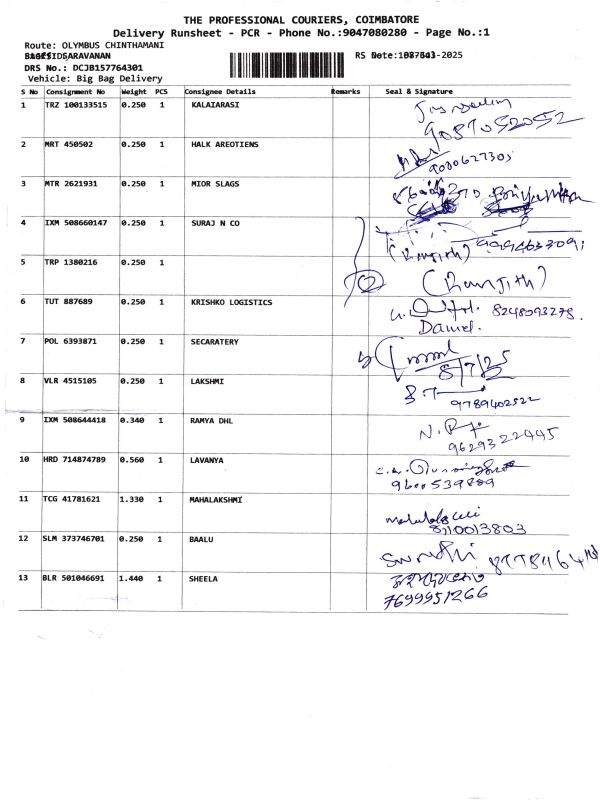 THE PROFESSIONAL COURIERS, COIMBATORE
Delivery Runsheet - PCR - Phone No.:9047080280 - Page No.:1
Route: OLYMBUS CHINTHAMANI
SARAVANAN
DRS No.: DCJB157764301
Vehicle: Big Bag Delivery
S No Consignment No Weight PCS Consignee Details Remarks Seal & Signature
1 TRZ 100133515 0.250 1 KALAIARASI
9087052052
2 MRT 450502 0.250 1 HALK AREOTIENS
9080627305
3 MTR 2621931 0.250 1 MIOR SLAGS
4 IXM 508660147 0.250 1 SURAJ N CO
(Ranjith) 9994633091
5 TRP 1380216 0.250 1
2 (Ranjith)
6 TUT 887689 0.250 1 KRISHKO LOGISTICS
8248093278
Daniel.
7 POL 6393871 0.250 1 SECARATERY
8/7/25
8 VLR 4515105 0.250 1 LAKSHMI
9789402522
9 IXM 508644418 0.340 1 RAMYA DHL
9629322445
10 HRD 714874789 0.560 1 LAVANYA
9600539889
11 TCG 41781621 1.330 1 MAHALAKSHMI
8110013803
12 SLM 373746701 0.250 1 BAALU
Swruthi
13 BLR 501046691 1.440 1 SHEELA
7699951266